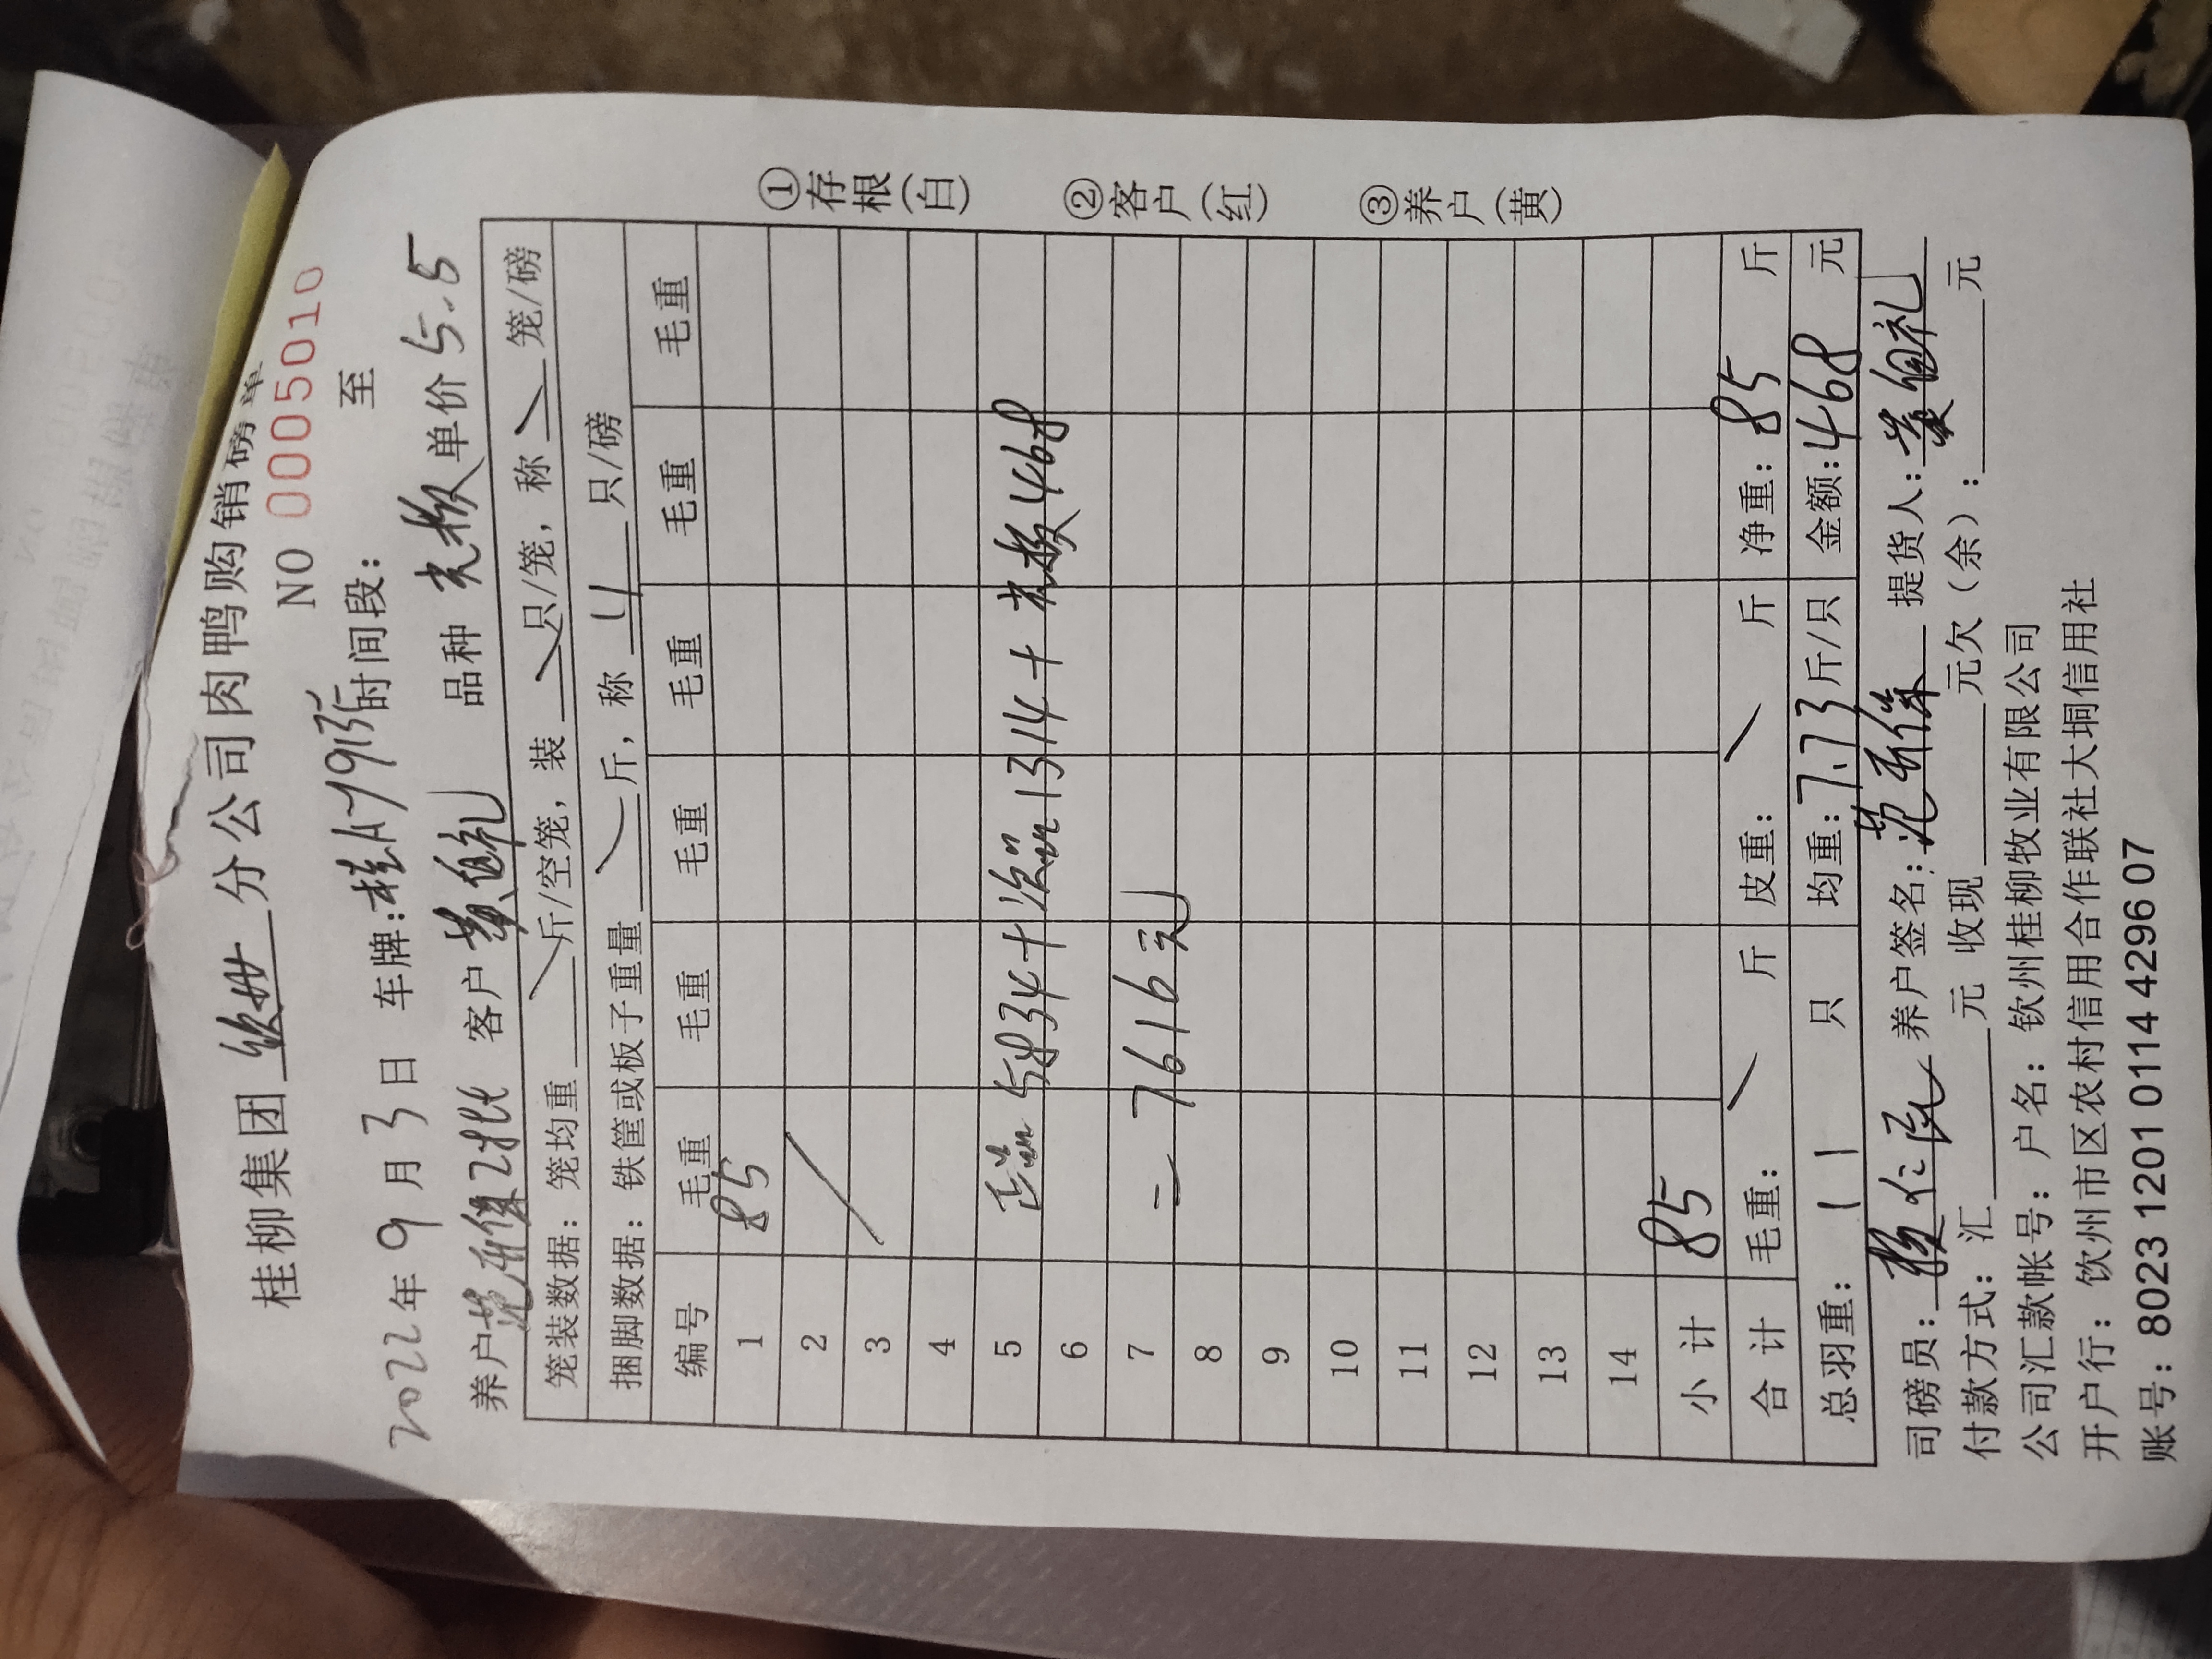 桂柳集团 钦州 分公司肉鸭购销磅单
NO 0005010
2022年9月3日 车牌: 桂A 时间段: 至
养户 2批 客户 黄 礼 品种 单价 5.5
笼装数据: 笼均重 斤/空笼, 装 只/笼, 称 笼/磅
捆脚数据: 铁筐或板子重量 斤, 称 4 只/磅
编号 毛重 毛重 毛重 毛重 毛重 毛重
1 85
2
3
4
5 正品 5834+次品1314+ 468
6
7 =7616元
8
9
10
11
12
13
14
小计 85
合计 毛重: 斤 皮重: 斤 净重: 85 斤
总羽重: 11 只 均重: 7.73 斤/只 金额: 468 元
司磅员: 养户签名: 提货人: 黄 礼
付款方式: 汇 元 收现 元欠(余): 元
公司汇款帐号: 户名: 钦州桂柳牧业有限公司
开户行: 钦州市区农村信用合作联社大垌信用社
账号: 8023 1201 0114 4296 07
①存根(白)
②客户(红)
③养户(黄)